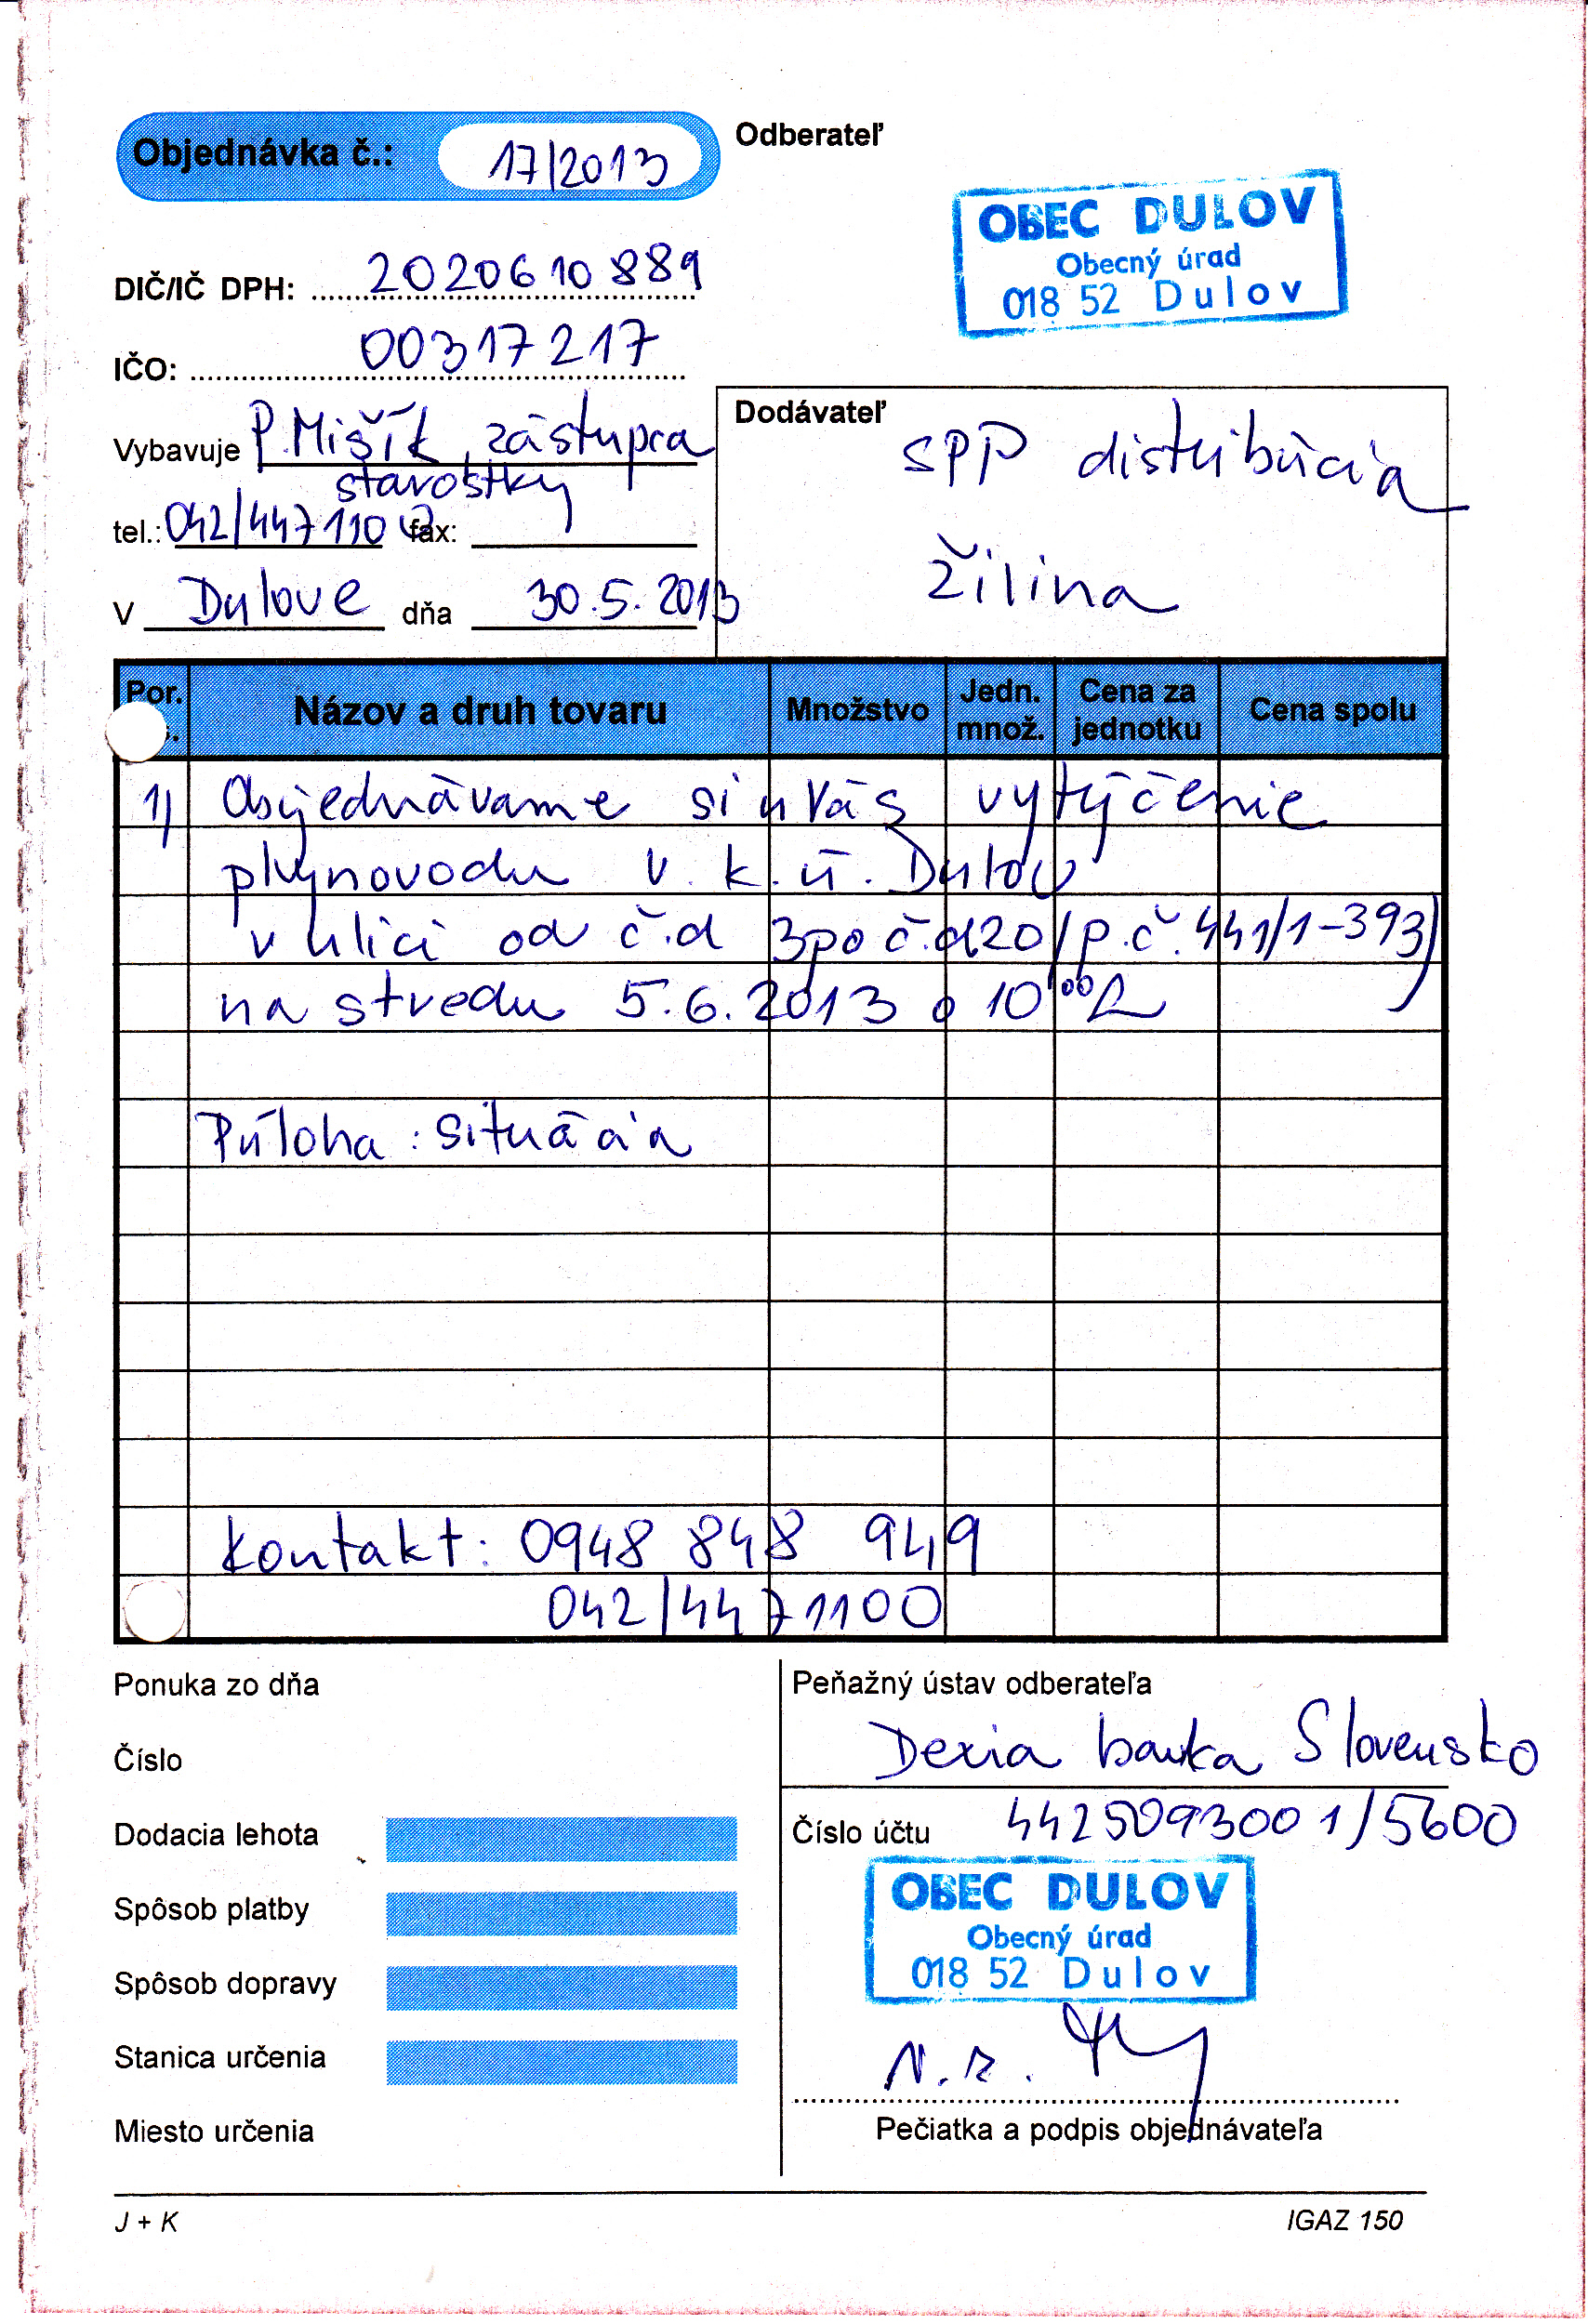 Objednávka č.: 17/2013
Odberateľ
OBEC DULOV
Obecný úrad
018 52 Dulov
DIČ/IČ DPH: 2020610889
IČO: 00317217
Vybavuje P. Mišík, zástupca
starostky
tel.: 042/4471100 fax:
V Dulove dňa 30.5.2013
Dodávateľ
SPP distribúcia
Žilina
Por. Názov a druh tovaru Množstvo Jedn. množ. Cena za jednotku Cena spolu
1) Objednávame si u Vás vytýčenie
plynovodu v k.ú. Dulov
v ulici od č.d 3 po č.d 20 (p.č. 441/1-393)
na stredu 5.6.2013 o 10⁰⁰ h
Príloha: situácia
Kontakt: 0948 848 949
042/4471100
Ponuka zo dňa
Číslo
Dodacia lehota
Spôsob platby
Spôsob dopravy
Stanica určenia
Miesto určenia
Peňažný ústav odberateľa
Dexia banka Slovensko
Číslo účtu 4425093001/5600
OBEC DULOV
Obecný úrad
018 52 Dulov
Pečiatka a podpis objednávateľa
J + K
IGAZ 150